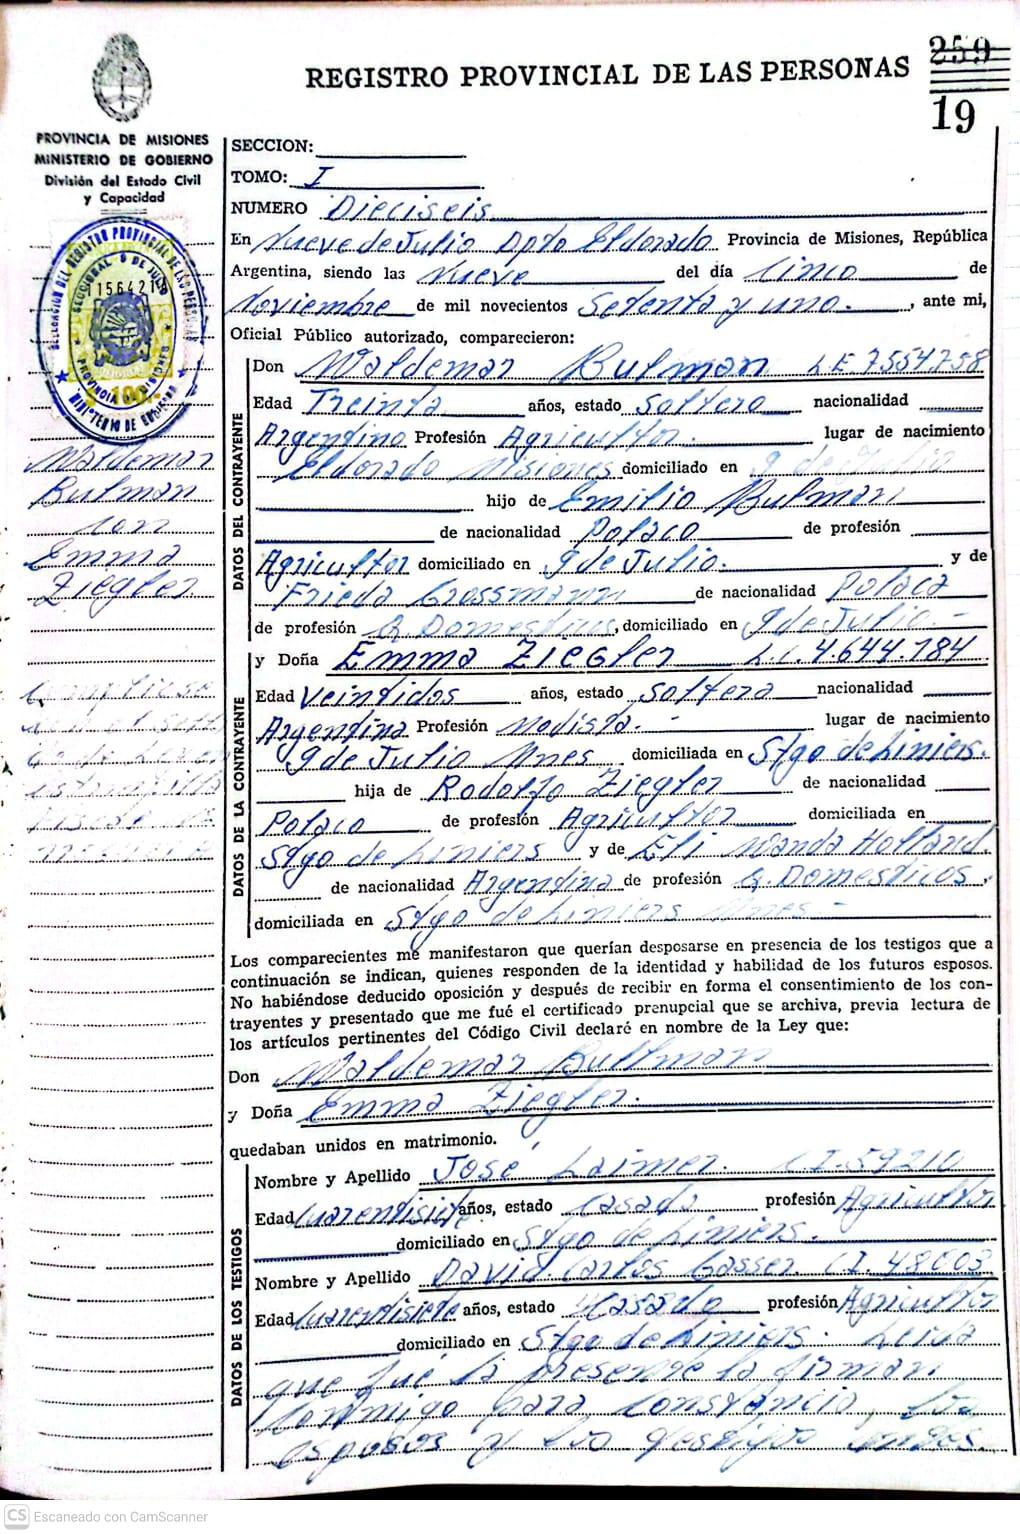 REGISTRO PROVINCIAL DE LAS PERSONAS
259
19
PROVINCIA DE MISIONES
MINISTERIO DE GOBIERNO
División del Estado Civil
y Capacidad
DELEGACION DEL REGISTRO PROVINCIAL DE LAS PERSONAS
SECCIONAL 9 DE JULIO
156421
PROVINCIA MISIONES
100.-
MINISTERIO DE GOBIERNO
Waldemar
Bulman
con
Emma
Ziegler.
SECCION:
TOMO: I
NUMERO Dieciseis
En Nueve de Julio Dpto Eldorado Provincia de Misiones, República
Argentina, siendo las Nueve del día Cinco de
Noviembre de mil novecientos Setenta y uno. , ante mi,
Oficial Público autorizado, comparecieron:
DATOS DEL CONTRAYENTE
Don Waldemar Bulman L.E 7554.758
Edad Treinta años, estado Soltero nacionalidad
Argentino Profesión Agricultor. lugar de nacimiento
Eldorado Misiones domiciliado en 9 de Julio
hijo de Emilio Bulman
de nacionalidad Polaco de profesión
Agricultor domiciliado en 9 de Julio. y de
Frieda Grossmann de nacionalidad Polaca
de profesión Q. Domesticos, domiciliado en 9 de Julio. -
DATOS DE LA CONTRAYENTE
y Doña Emma Ziegler L.C. 4.644.184
Edad Veintidos años, estado Soltera nacionalidad
Argentina Profesión Modista. - lugar de nacimiento
9 de Julio Mnes domiciliada en Stgo de Liniers.
hija de Rodolfo Ziegler de nacionalidad
Polaco de profesión Agricultor domiciliada en
Stgo de Liniers y de Eli Wanda Holland.
de nacionalidad Argentina de profesión Q. Domesticos.
domiciliada en Stgo de Liniers Mnes -
Los comparecientes me manifestaron que querían desposarse en presencia de los testigos que a
continuación se indican, quienes responden de la identidad y habilidad de los futuros esposos.
No habiéndose deducido oposición y después de recibir en forma el consentimiento de los con-
trayentes y presentado que me fué el certificado prenupcial que se archiva, previa lectura de
los artículos pertinentes del Código Civil declaré en nombre de la Ley que:
Don Waldemar Bullman
y Doña Emma Ziegler.
quedaban unidos en matrimonio.
DATOS DE LOS TESTIGOS
Nombre y Apellido José Laimer. C.I. 59210
Edad Cuarentisiete. años, estado Casado profesión Agricultor
domiciliado en Stgo de Liniers.
Nombre y Apellido David Carlos Gasser C.I. 48003
Edad Cuarentisiete años, estado Casado profesión Agricultor
domiciliado en Stgo de Liniers. Leida
que fué la presente la firman
Conmigo para constancia, los
esposos y los testigos
CS Escaneado con CamScanner